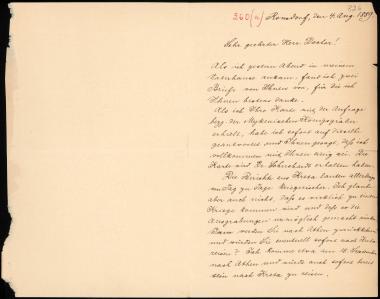 236
360(a) Ronsdorf, den 4. Aug. 1889.
Sehr geehrter Herr Doctor!
Als ich gestern Abend in meinem
Vaterhause ankam, fand ich zwei
Briefe von Ihnen vor, für die ich
Ihnen bestens danke.
Als ich Ihre Karte mit der Anfrage
bezg. der Mykenischen
erhielt, habe ich sofort auf dieselbe
geantwortet und Ihnen gesagt, daß ich
vollkommen mit Ihnen einig sei. Die
Karte wird Dr. Schuchardt erhalten haben.
Die Berichte aus Kreta lauten allerdings
von Tag zu Tage kriegerischer. Ich glaube
aber noch nicht, daß es wirklich zu einem
Kriege kommen wird und daß so die
Ausgrabungen unmöglich gemacht
Wann werden Sie nach Athen zurückkehren
und würden Sie eventuell sofort nach Kreta
reisen? Ich komme etwa am
nach Athen und würde auch sofort bereit
sein nach Kreta zu reisen.